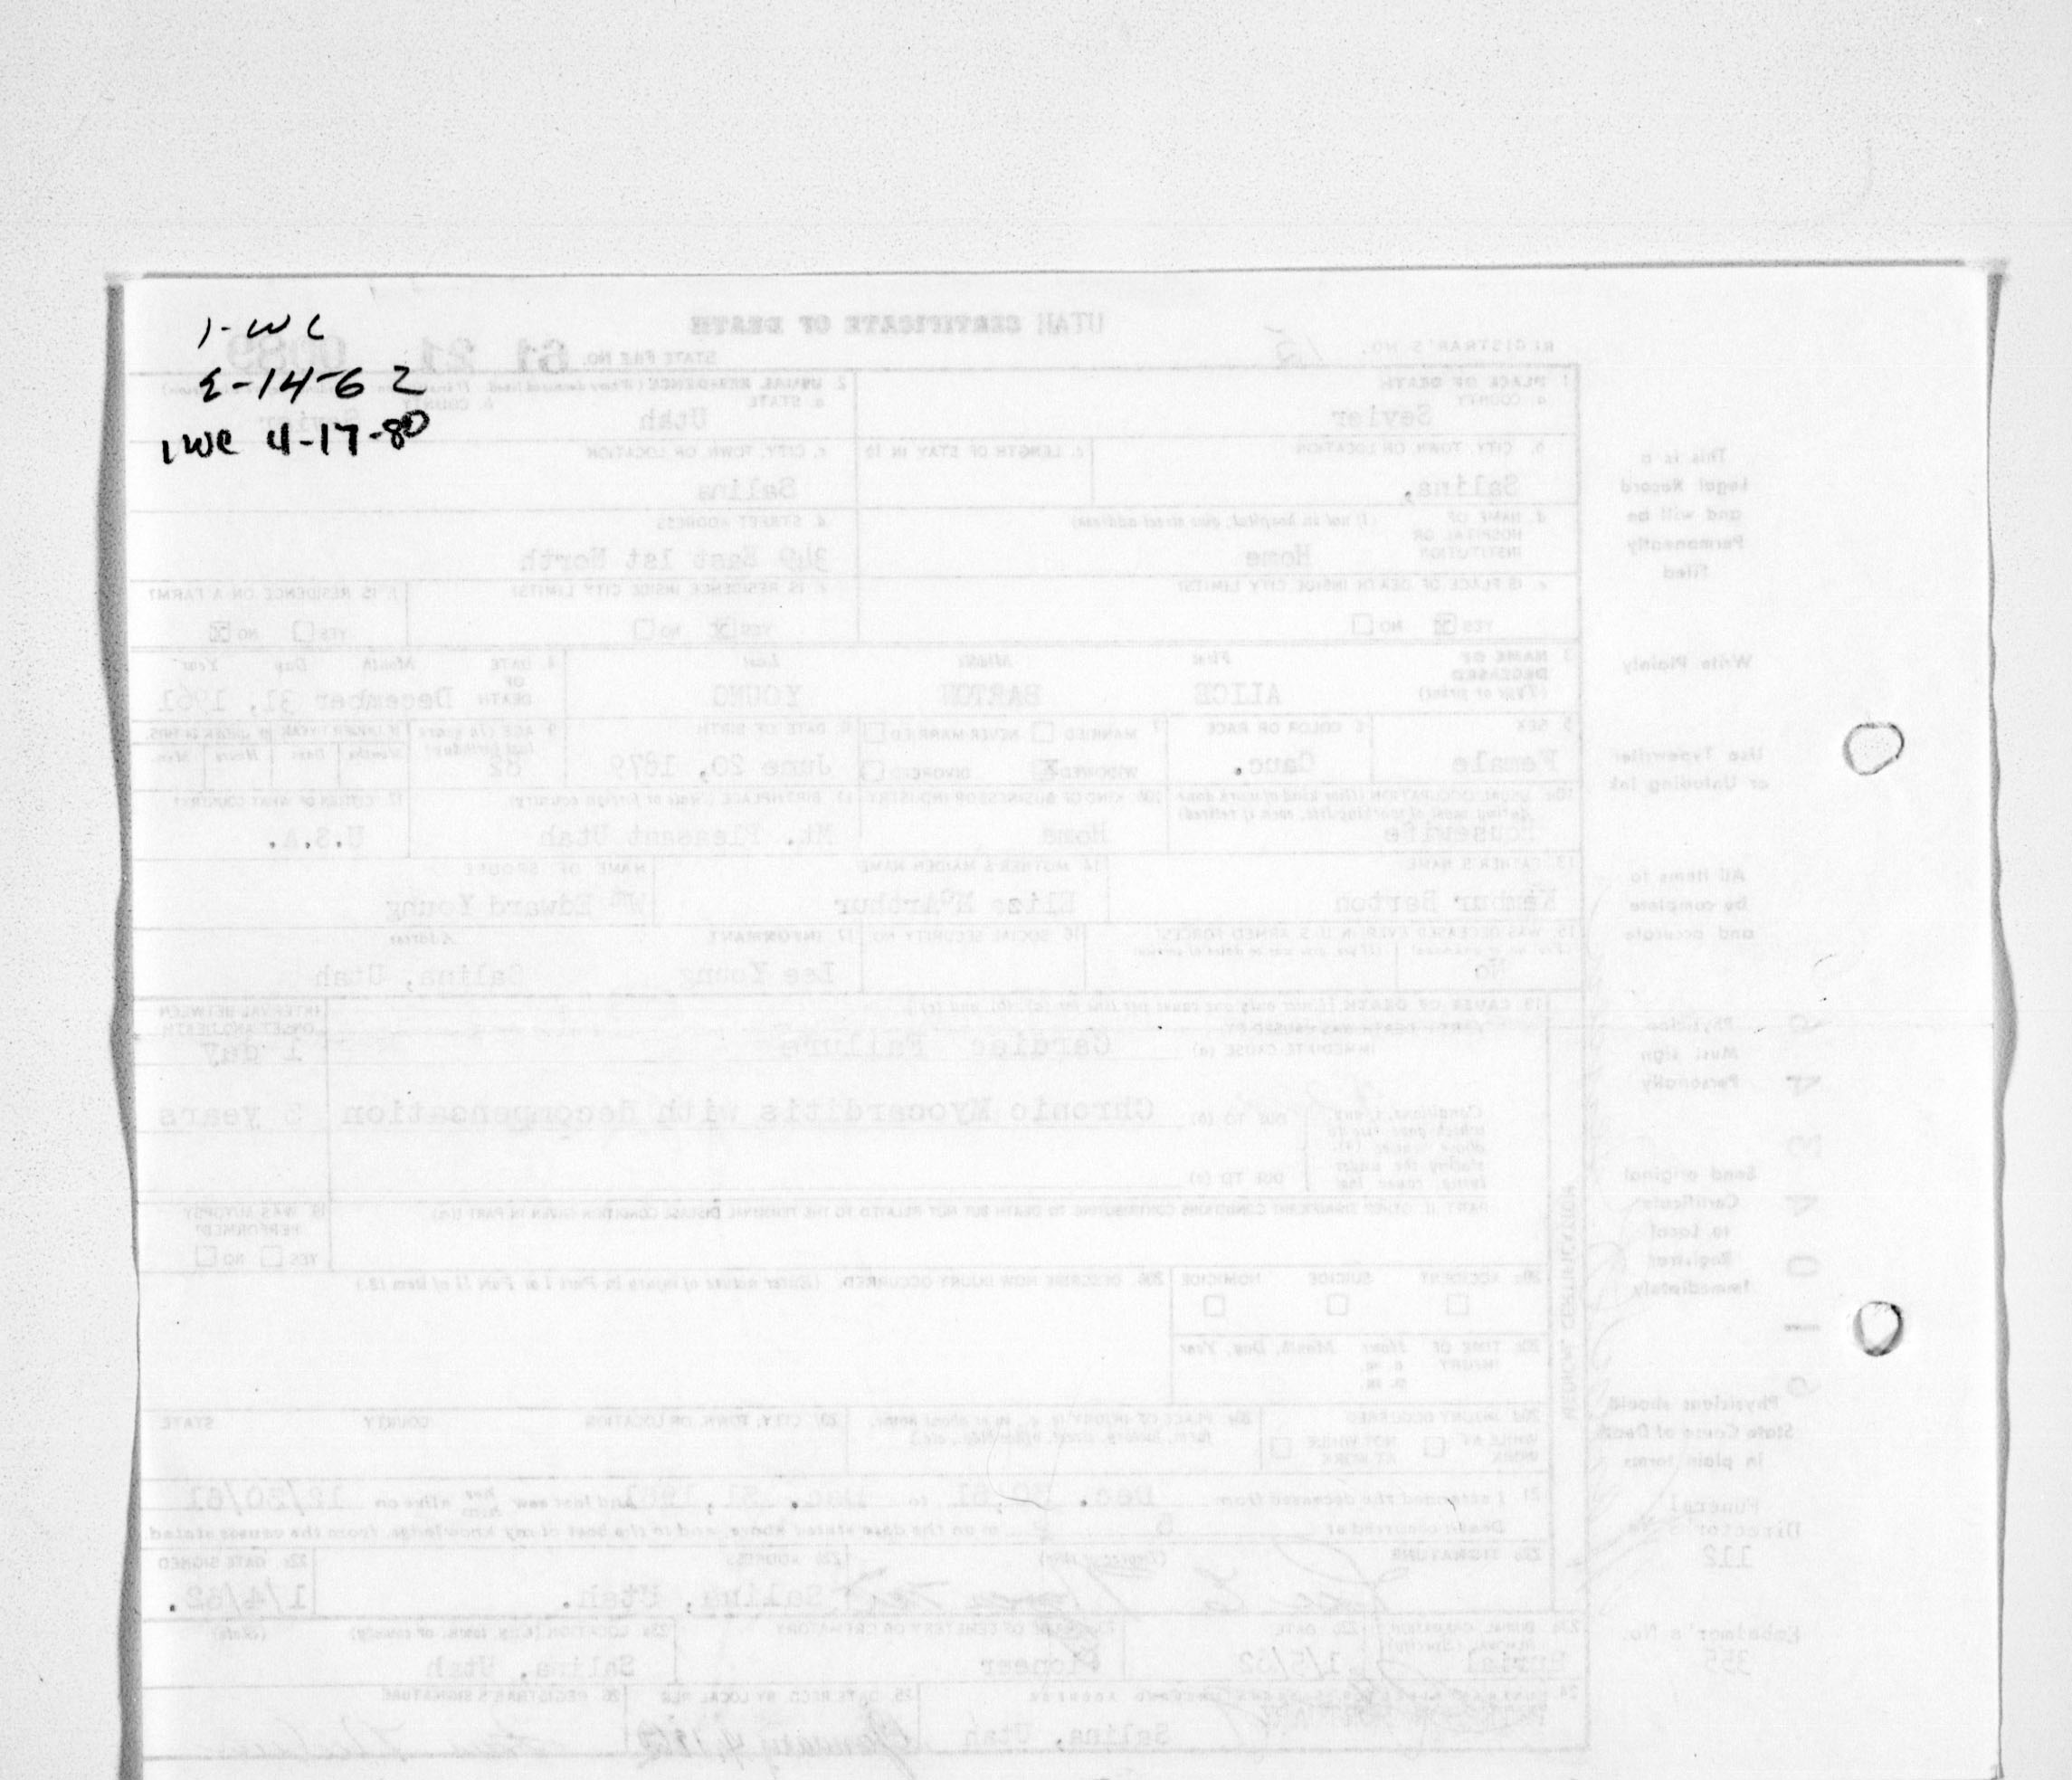 1-WC
2-14-62
1WC 4-17-80
UTAH CERTIFICATE OF DEATH
REGISTRAR'S NO. 12
STATE FILE NO. 61 21 0089
1. PLACE OF DEATH
a. COUNTY
Sevier
2. USUAL RESIDENCE
a. STATE
Utah
b. COUNTY
Sevier
b. CITY, TOWN, OR LOCATION
Salina,
c. LENGTH OF STAY IN 1b
c. CITY, TOWN, OR LOCATION
Salina
d. NAME OF HOSPITAL OR INSTITUTION
(If not in hospital, give street address)
Home
d. STREET ADDRESS
East 1st North
e. IS PLACE OF DEATH INSIDE CITY LIMITS?
YES NO
e. IS RESIDENCE INSIDE CITY LIMITS?
YES NO
f. IS RESIDENCE ON A FARM?
YES NO
3. NAME OF DECEASED
(Type or print)
First Middle Last
ALICE BARTON YOUNG
4. DATE OF DEATH
Month Day Year
December 31, 1961
5. SEX
Female
6. COLOR OR RACE
Cauc.
7. MARRIED NEVER MARRIED
WIDOWED DIVORCED
8. DATE OF BIRTH
June 20, 1879
9. AGE (In years last birthday)
82
IF UNDER 1 YEAR IF UNDER 24 HRS.
Months Days Hours Min.
10a. USUAL OCCUPATION (Give kind of work done during most of working life, even if retired)
Housewife
10b. KIND OF BUSINESS OR INDUSTRY
Home
11. BIRTHPLACE (State or foreign country)
Mt. Pleasant Utah
12. CITIZEN OF WHAT COUNTRY?
U.S.A.
13. FATHER'S NAME
Barton
14. MOTHER'S MAIDEN NAME
Eliza McArthur
NAME OF SPOUSE
Wm Edward Young
15. WAS DECEASED EVER IN U.S. ARMED FORCES?
No
16. SOCIAL SECURITY NO.
17. INFORMANT Address
Lee Young Salina, Utah
18. CAUSE OF DEATH [Enter only one cause per line for (a), (b), and (c)]
PART I. DEATH WAS CAUSED BY
IMMEDIATE CAUSE (a) Cardiac Failure
INTERVAL BETWEEN ONSET AND DEATH
1 day
Conditions, if any, which gave rise to above cause (a), stating the underlying cause last
DUE TO (b) Chronic Myocarditis with decompensation 3 years
DUE TO (c)
PART II. OTHER SIGNIFICANT CONDITIONS CONTRIBUTING TO DEATH BUT NOT RELATED TO THE TERMINAL DISEASE CONDITION GIVEN IN PART I(a)
19. WAS AUTOPSY PERFORMED?
YES NO
20a. ACCIDENT SUICIDE HOMICIDE
20b. DESCRIBE HOW INJURY OCCURRED. (Enter nature of injury in Part I or Part II of item 18.)
20c. TIME OF INJURY Hour Month, Day, Year
a. m.
p. m.
20d. INJURY OCCURRED
WHILE AT WORK NOT WHILE AT WORK
20e. PLACE OF INJURY (e. g., in or about home, farm, factory, street, office bldg., etc.)
20f. CITY, TOWN, OR LOCATION COUNTY STATE
21. I attended the deceased from Dec. 30,61 to Dec. 31, 1961 and last saw her alive on 12/30/61
Death occurred at m on the date stated above, and to the best of my knowledge, from the causes stated.
22a. SIGNATURE (Degree or title)
22b. ADDRESS
Salina, Utah.
22c. DATE SIGNED
1/4/62.
23a. BURIAL, CREMATION, REMOVAL (Specify)
Burial
23b. DATE
1/5/62
23c. NAME OF CEMETERY OR CREMATORY
Pioneer
23d. LOCATION (City, town, or county) (State)
Salina, Utah
24. ADDRESS
Salina, Utah
25. DATE RECD BY LOCAL REG.
January 4, 1962
26. REGISTRAR'S SIGNATURE
MEDICAL CERTIFICATION
This is a
Legal Record
and will be
Permanently
Filed
Write Plainly
Use Typewriter
or Unfading Ink
All Items to
be complete
and accurate
Physician
Must sign
Personally
Send original
Certificate
to Local
Registrar
Immediately
Physicians should
State Cause of Death
in plain terms
Funeral
Director's No
112
Embalmer's No.
355